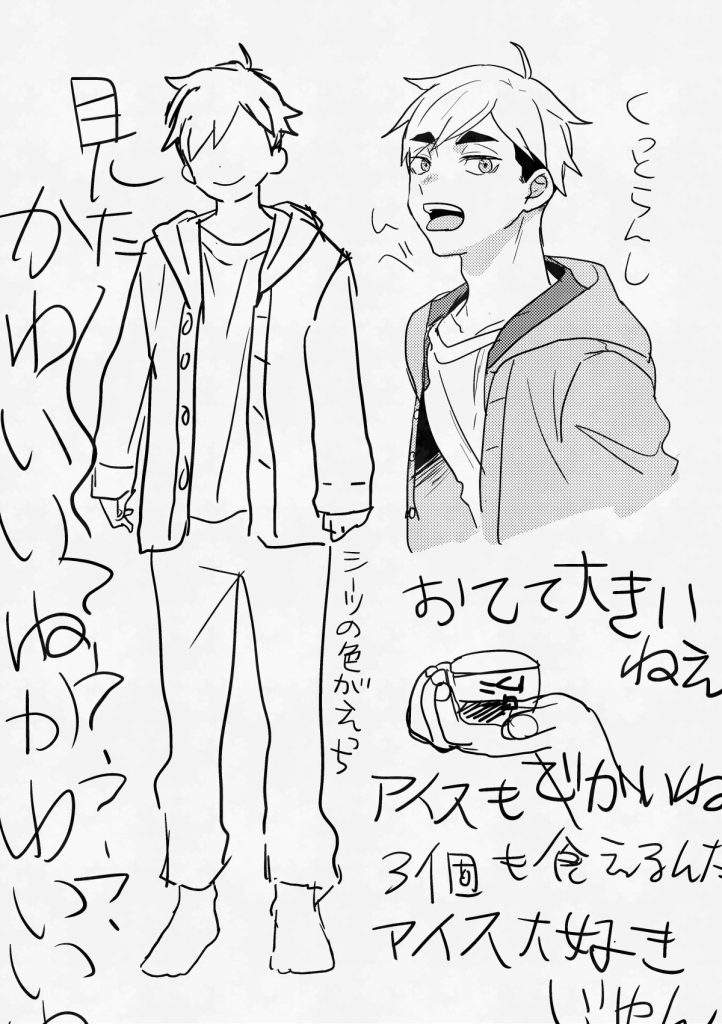 見た〜〜????
かわいいねかわいいね
シーツの色がえっち
おてて大きい
ねえ
アイスもでかいね
3個も食えるんだ
アイス大好き
じゃん